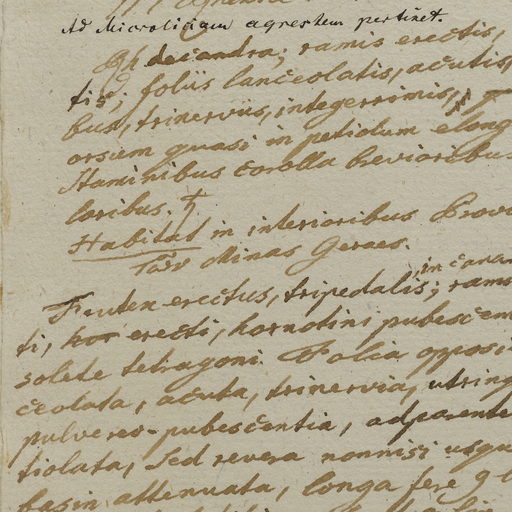 Ad Microliciam agrestem pertinet.
Rh decandra; ramis erectis,
tis; foliis lanceolatis, acutis,
bus, trinerviis, integerrimis,
orsum quasi in petiolum elong
Staminibus corolla brevioribus
loribus. †
Habitat in interioribus Provi
Minas Geraes.
in canar
Frutex erectus, tripedalis; ramo
ti, erecti, hornotini pubescen
solete tetragoni. Folia opposi
ceolata, acuta, trinervia, utring
pulvereo-pubescentia, adparente
tiolata, sed revera nonnisi usqu
basin attenuata, longa fere 9 l